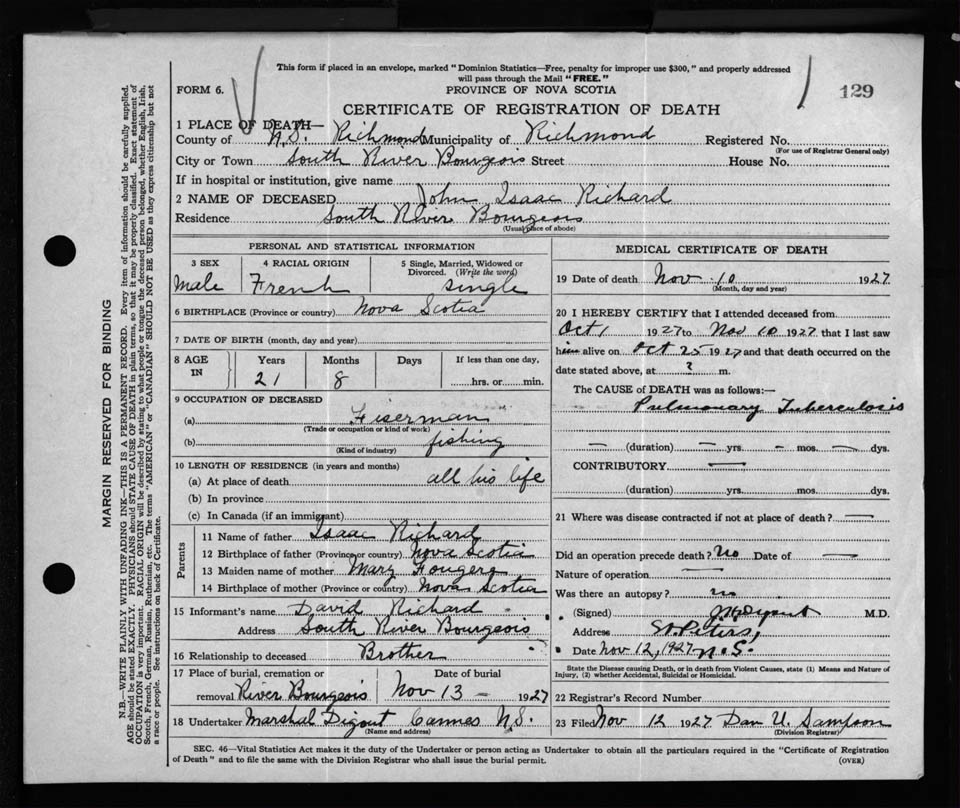 This form if placed in an envelope, marked "Dominion Statistics—Free, penalty for improper use $300," and properly addressed
will pass through the Mail "FREE."
FORM 6.
PROVINCE OF NOVA SCOTIA
129
CERTIFICATE OF REGISTRATION OF DEATH
1 PLACE OF DEATH—
County of N.S. Richmond Municipality of Richmond Registered No.
(For use of Registrar General only)
City or Town South River Bourgeois Street House No.
If in hospital or institution, give name
2 NAME OF DECEASED John Isaac Richard
Residence South River Bourgeois
(Usual place of abode)
PERSONAL AND STATISTICAL INFORMATION
3 SEX 4 RACIAL ORIGIN 5 Single, Married, Widowed or
Divorced. (Write the word)
Male French Single
6 BIRTHPLACE (Province or country) Nova Scotia
7 DATE OF BIRTH (month, day and year)
8 AGE IN Years Months Days If less than one day,
21 8 hrs. or min.
9 OCCUPATION OF DECEASED
(a) Fiserman
(Trade or occupation or kind of work)
(b) fishing
(Kind of industry)
10 LENGTH OF RESIDENCE (in years and months)
(a) At place of death all his life
(b) In province
(c) In Canada (if an immigrant)
Parents
11 Name of father Isaac Richard
12 Birthplace of father (Province or country) Nova Scotia
13 Maiden name of mother Mary Fougere
14 Birthplace of mother (Province or country) Nova Scotia
15 Informant's name David Richard
Address South River Bourgeois
16 Relationship to deceased Brother
17 Place of burial, cremation or Date of burial
removal River Bourgeois Nov 13 — 1927
18 Undertaker Marshal Digout Cannes N.S.
(Name and address)
MEDICAL CERTIFICATE OF DEATH
19 Date of death Nov. 10 1927
(Month, day and year)
20 I HEREBY CERTIFY that I attended deceased from
Oct 1 1927 to Nov 10 1927 that I last saw
him alive on Oct 25 1927 and that death occurred on the
date stated above, at ? m.
The CAUSE of DEATH was as follows:—
Pulmonary Tuberculosis
— (duration) — yrs. — mos. — dys.
CONTRIBUTORY —
(duration) yrs. mos. dys.
21 Where was disease contracted if not at place of death? —
Did an operation precede death? no Date of —
Nature of operation —
Was there an autopsy? no
(Signed) Digout M.D.
Address St. Peters,
Date Nov 12, 1927 N.S.
State the Disease causing Death, or in death from Violent Causes, state (1) Means and Nature of
Injury, (2) whether Accidental, Suicidal or Homicidal.
22 Registrar's Record Number
23 Filed Nov 12 1927 Dan U. Sampson
(Division Registrar)
SEC. 46—Vital Statistics Act makes it the duty of the Undertaker or person acting as Undertaker to obtain all the particulars required in the "Certificate of Registration
of Death" and to file the same with the Division Registrar who shall issue the burial permit.
(OVER)
MARGIN RESERVED FOR BINDING
N.B.—WRITE PLAINLY WITH UNFADING INK—THIS IS A PERMANENT RECORD. Every item of information should be carefully supplied.
AGE should be stated EXACTLY. PHYSICIANS should STATE CAUSE OF DEATH in plain terms, so that it may be properly classified. Exact statement of
OCCUPATION is very important. RACIAL ORIGIN will be described by stating to what people or tongue the deceased person belonged, whether English, Irish,
Scotch, French, German, Russian, Ruthenian, etc. The terms "AMERICAN" or "CANADIAN" SHOULD NOT BE USED as they express citizenship but not
a race or people. See instructions on back of Certificate.